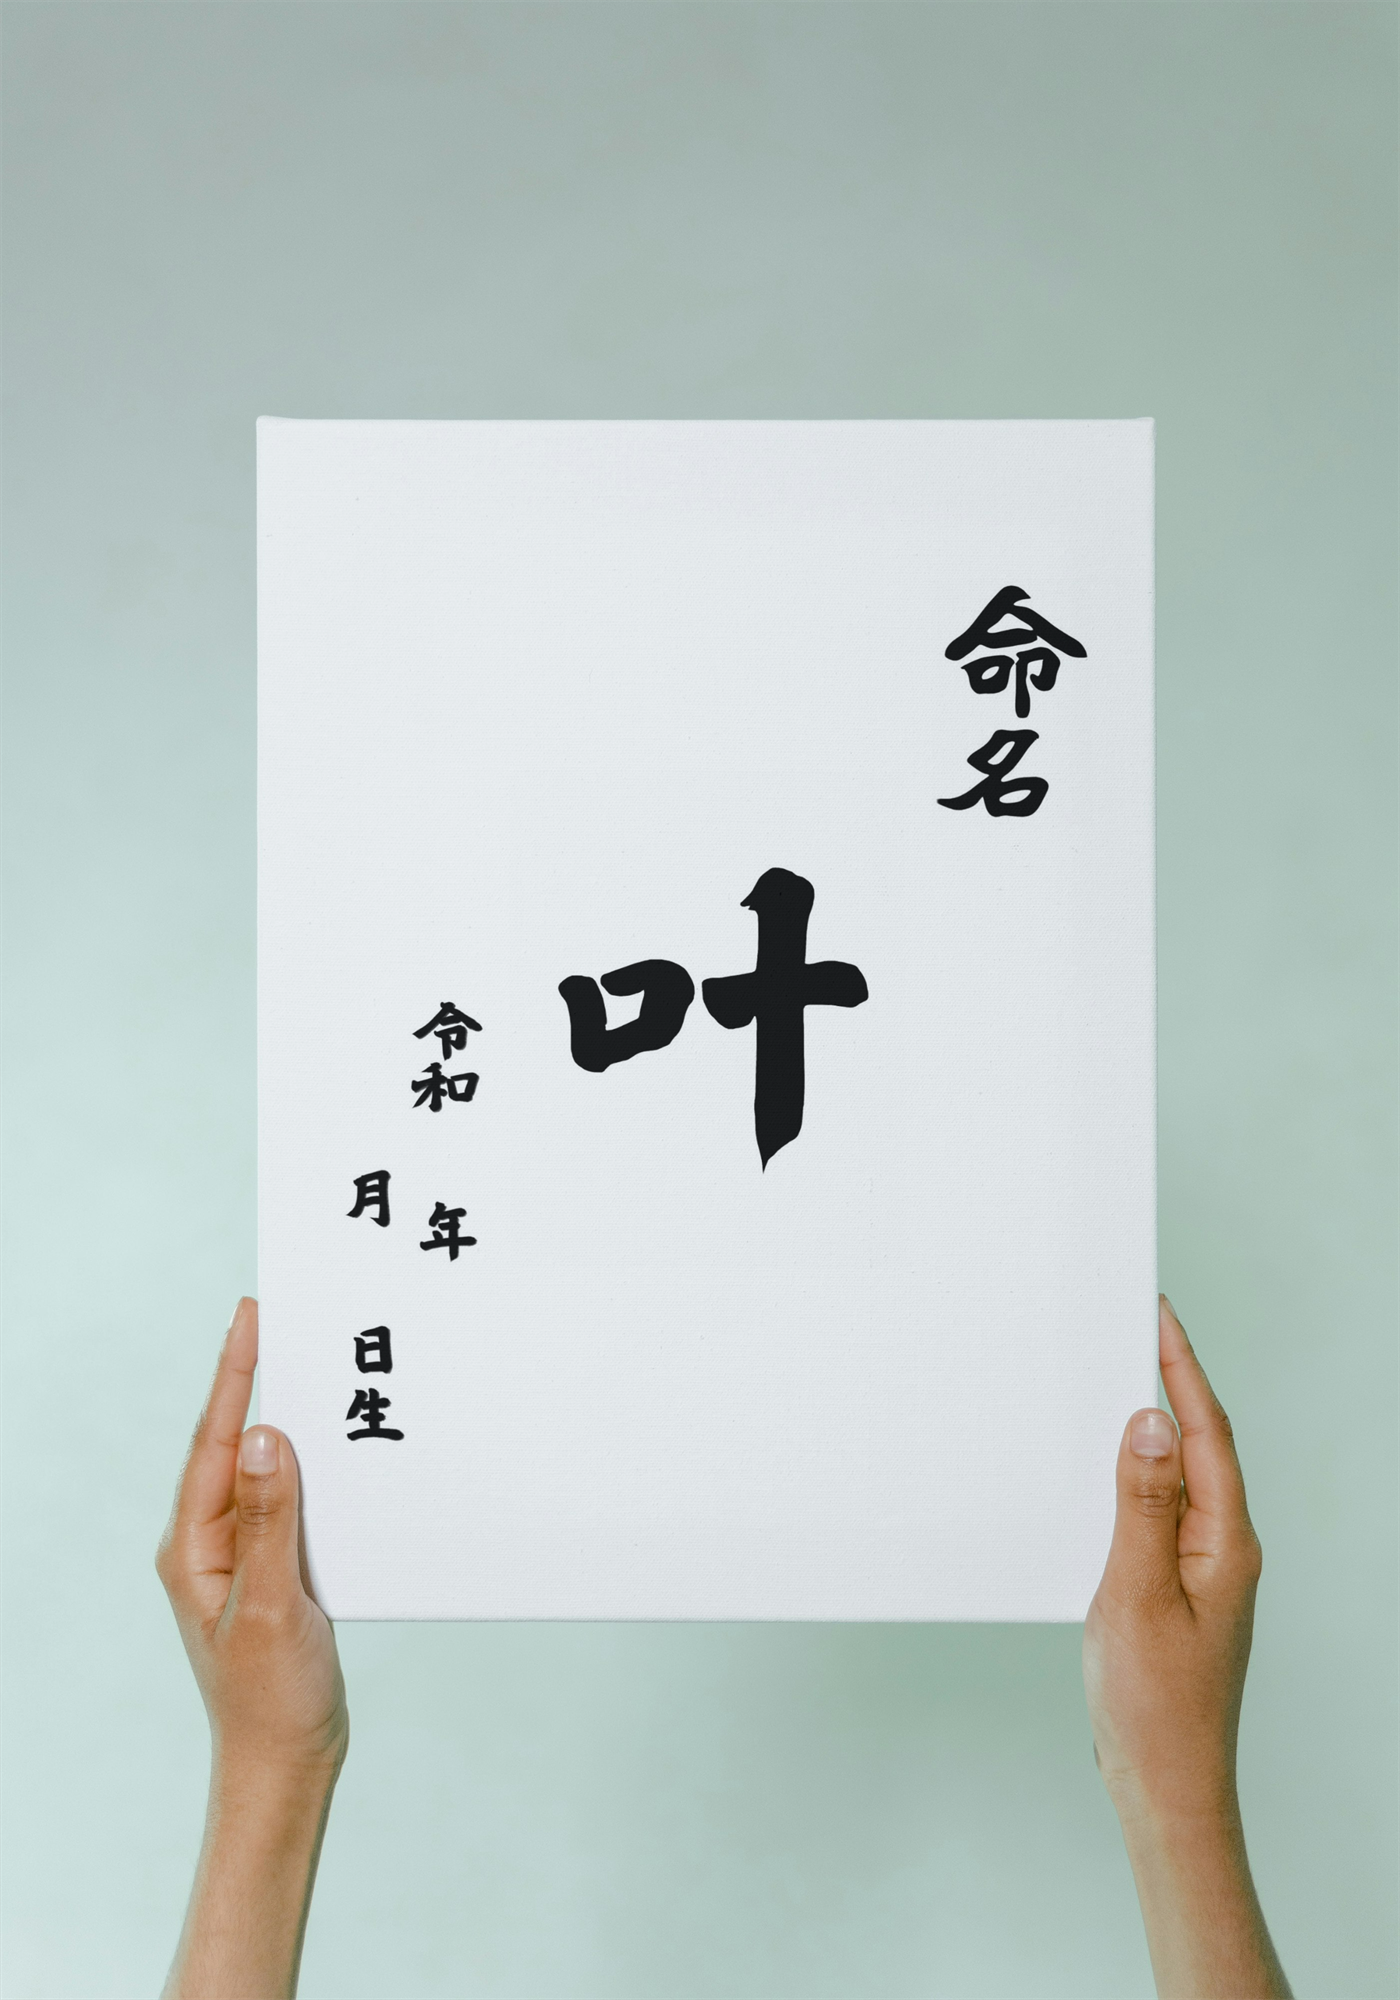 命名
叶
令和 年
月 日生